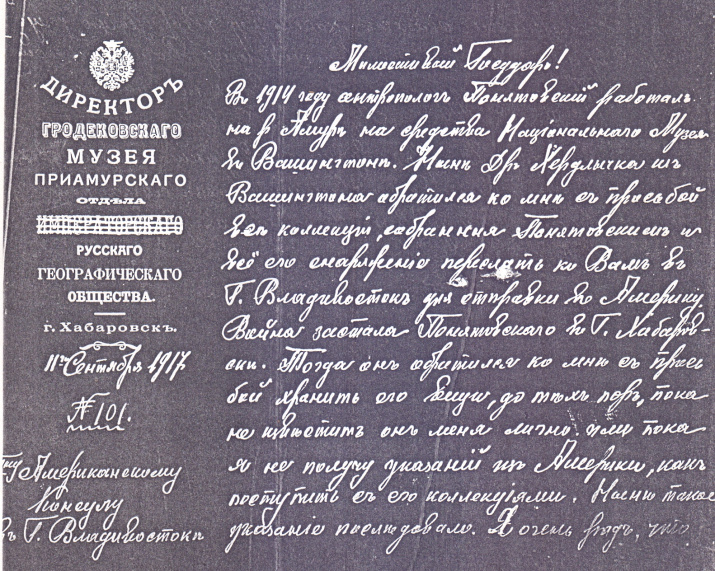 ДИРЕКТОРЪ
ГРОДЕКОВСКАГО
МУЗЕЯ
ПРИАМУРСКАГО
ОТДѢЛА
ИМПЕРАТОРСКАГО
РУССКАГО
ГЕОГРАФИЧЕСКАГО
ОБЩЕСТВА.
г. Хабаровскъ.
11го Сентября 1917
№ 101.
Американскому
Консулу
въ Г. Владивостокѣ
Милостивый Государь!
Въ 1914 году антропологъ Понятовскій работалъ
на р. Амурѣ на средства Національнаго Музея
въ Вашингтонѣ. Нынѣ Др Хердличка изъ
Вашингтона обратился ко мнѣ съ просьбой
всѣ коллекціи, собранныя Понятовскимъ и
всё его снаряженіе переслать ко Вамъ въ
Г. Владивостокъ для отправки въ Америку.
Война застала Понятовскаго въ Г. Хабаров-
скѣ. Тогда онъ обратился ко мнѣ съ прось-
бой хранить его вещи, до тѣхъ поръ, пока
не извѣститъ онъ меня лично или пока
я не получу указаній изъ Америки, какъ
поступить съ его коллекціями. Нынѣ такое
указаніе послѣдовало. Я очень радъ, что